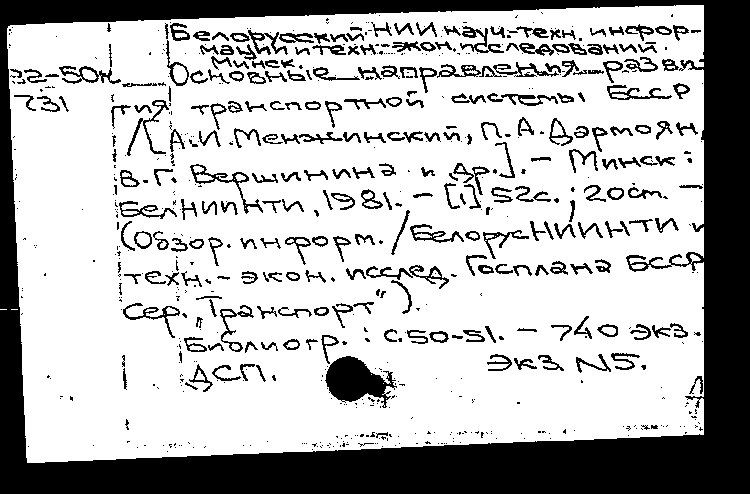 Белорусский НИИ науч.-техн. инфор-
мации и техн.-экон. исследований.
Минск.
22-50к Основные направления разви-
231 тия транспортной системы БССР
/[А.И. Менжинский, П.А. Дармоян,
В.Г. Вершинина и др.]. - Минск:
БелНИИНТИ, 1981. - [1], 52с.; 20см. -
(Обзор. информ. / БелорусНИИНТИ и
техн.-экон. исслед. Госплана БССР
Сер. „Транспорт“).
Библиогр.: с.50-51. - 740 экз.
ДСП. Экз. N5.